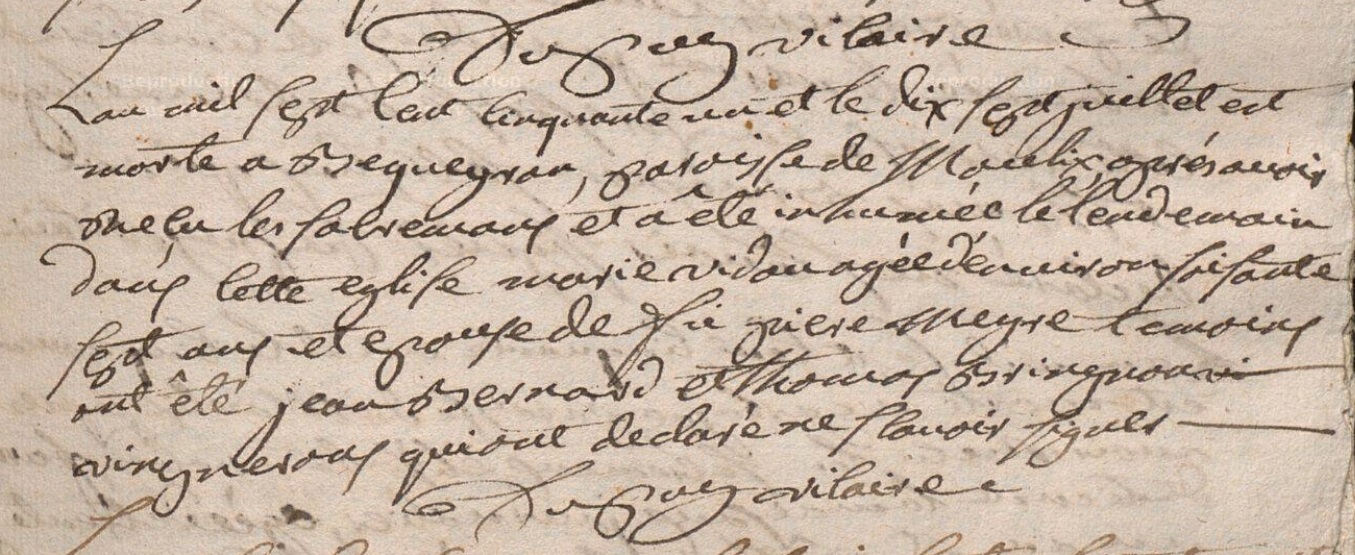 Dupuy vicaire
L'an mil sept cent cinquante un et le dix sept juillet est
morte a Bequeyran, paroisse de Moulix, après avoir
reçu les sacremans et a été inhumée le lendemain
dans cette eglise marie vidau agée d'environ soisante
sept ans et epouse de fû piere Meyre temoins
ont été jean Bernard et Thomas Bringnon
vingnerons qui ont declaré ne sçavoir signer
Dupuy vicaire